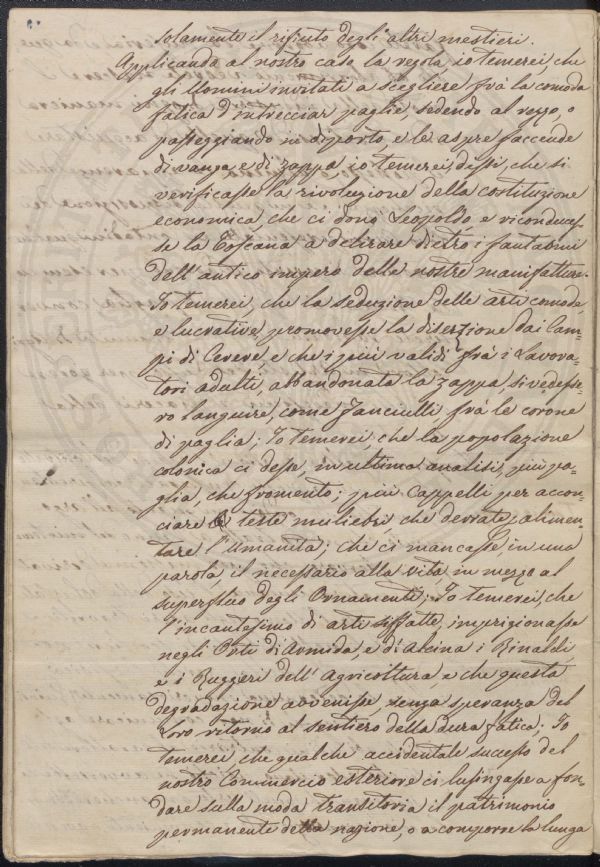 solamente il rifiuto degli altri mestieri.
Applicando al nostro caso la regola io temerei, che
gli Uomini invitati a scegliere frà la comoda
fatica d'intrecciar paglie sedendo al rezzo, o
passeggiando in diporto, e le aspre faccende
di vanga, e di zappa io temerei, dessi, che si
verificasse la rivoluzione della costituzione
economica, che ci donò Leopoldo, e riconduces-
se la Toscana a delirare dietro i fantasmi
dell'antico impero delle nostre manifatture.
Io temerei, che la seduzione delle arti comode,
e lucrative promovesse la diserzione dai Cam-
pi di Cerere, e che i più validi frà i Lavora-
tori adulti, abbandonata la zappa, si vedesse-
ro languire, come Fanciulli frà le corone
di paglia; Io temerei, che la popolazione
colonica ci desse, in ultima analisi, più pa-
glia, che fromento; più Cappelli per accon-
ciare teste muliebri che derrate alimen-
tare l'Umanità; che ci mancasse in una
parola il necessario alla vita in mezzo al
superfluo degli Ornamenti; Io temerei, che
l'incantesimo di arti siffatte, imprigionasse
negli Orti di Armida, e di Alcina i Rinaldi
e i Ruggeri dell'Agricoltura, e che questa
degradazione avvenisse senza speranza del
Loro ritorno al sentiero della dura fatica; Io
temerei, che qualche accidentale successo del
nostro Commercio esteriore ci lusingasse a fon-
dare sulla moda transitoria il patrimonio
permanente della nazione, o a comporre la lunga